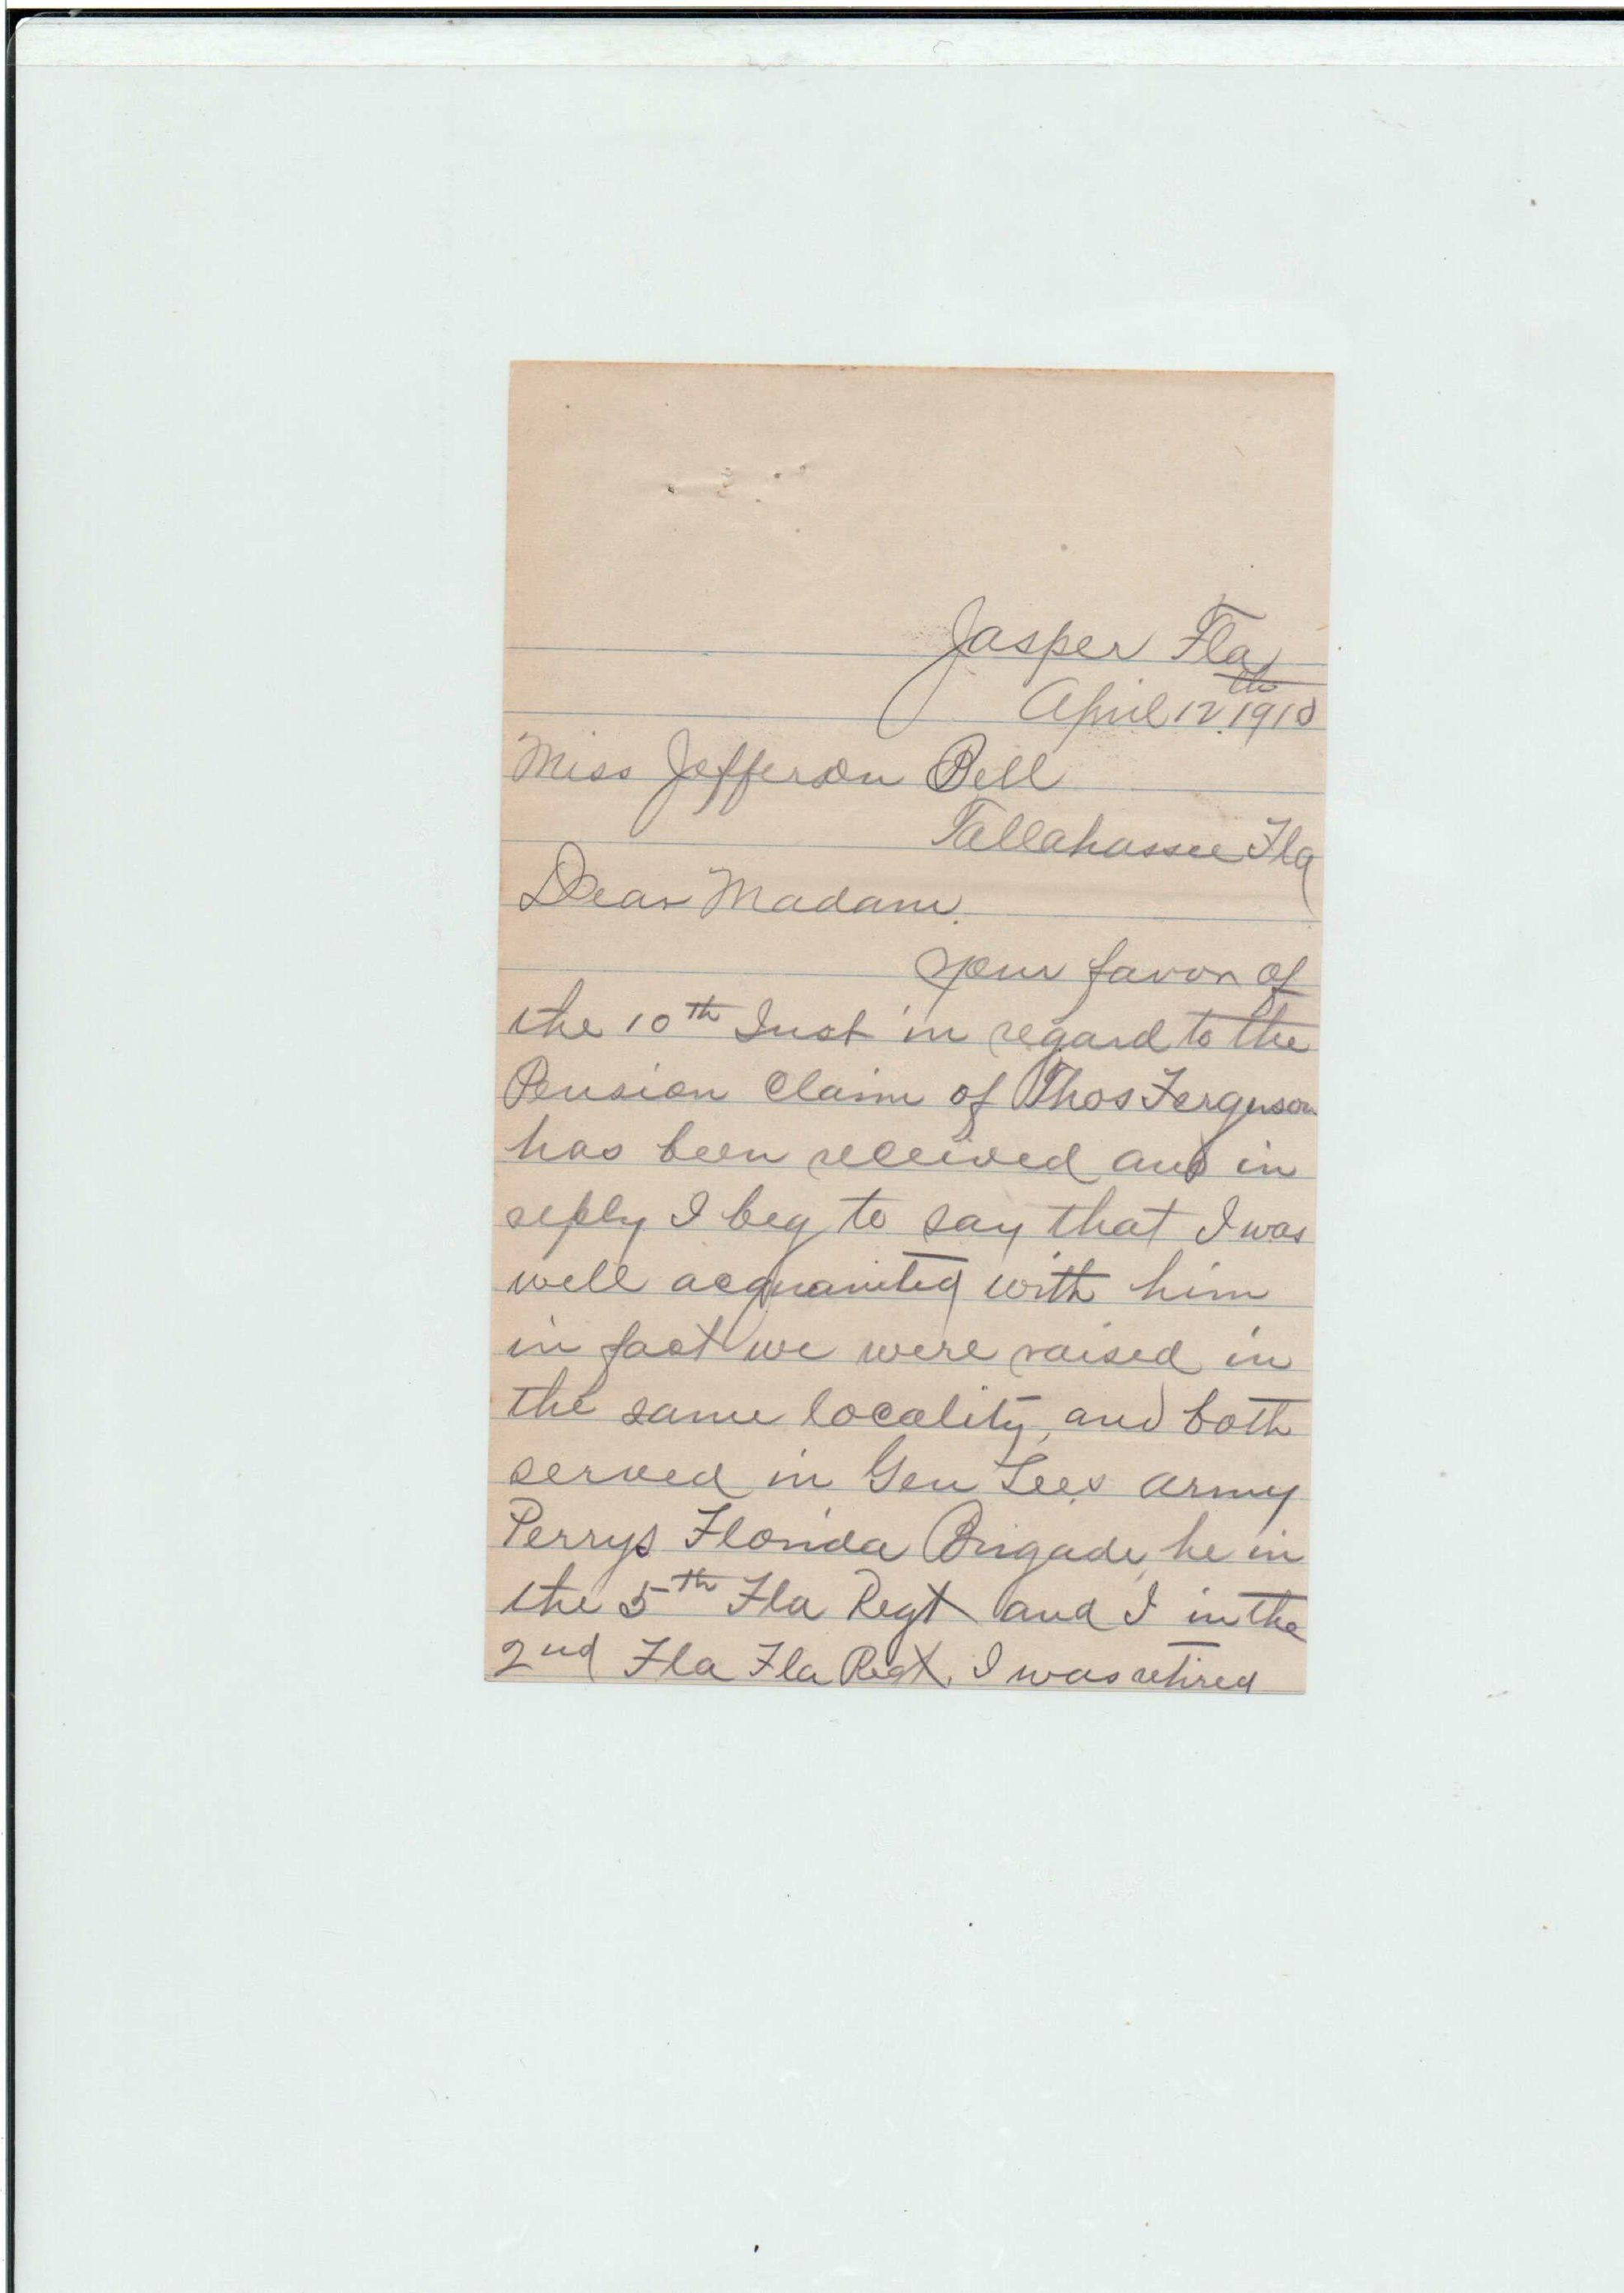 Jasper Fla
April 12th 1910
Miss Jefferson Bell
Tallahassee Fla
Dear Madam.
Your favor of
the 10th Inst in regard to the
Pension Claim of Thos Ferguson
has been received and in
reply I beg to say that I was
well acquainted with him
in fact we were raised in
the same locality, and both
served in Gen Lees army
Perrys Florida Brigade, he in
the 5th Fla Regt and I in the
2nd Fla Fla Regt. I was retired